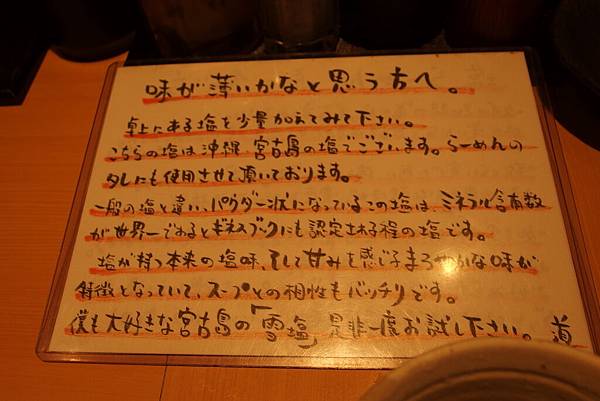 味が薄いかなと思う方へ。
卓上にある塩を少量加えてみて下さい。
こちらの塩は沖縄・宮古島の塩でございます。らーめんの
タレにも使用させて頂いております。
一般の塩と違い、パウダー状になっているこの塩は、ミネラル含有数
が世界一であるとギネスブックにも認定される程の塩です。
塩が持つ本来の塩味、そして甘みを感じるまろやかな味が
特徴となっていて、スープとの相性もバッチリです。
僕も大好きな宮古島の「雪塩」是非一度お試し下さい。 道